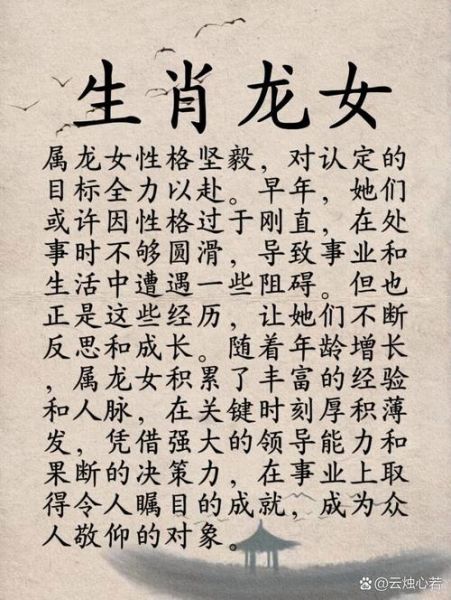 生肖龙女
属龙女性格坚毅，对认定的
目标全力以赴。早年，她们
或许因性格过于刚直，在处
事时不够圆滑，导致事业和
生活中遭遇一些阻碍。但也
正是这些经历，让她们不断
反思和成长。随着年龄增长
，属龙女积累了丰富的经验
和人脉，在关键时刻厚积薄
发，凭借强大的领导能力和
果断的决策力，在事业上取
得令人瞩目的成就，成为众
人敬仰的对象。
@云烛心若